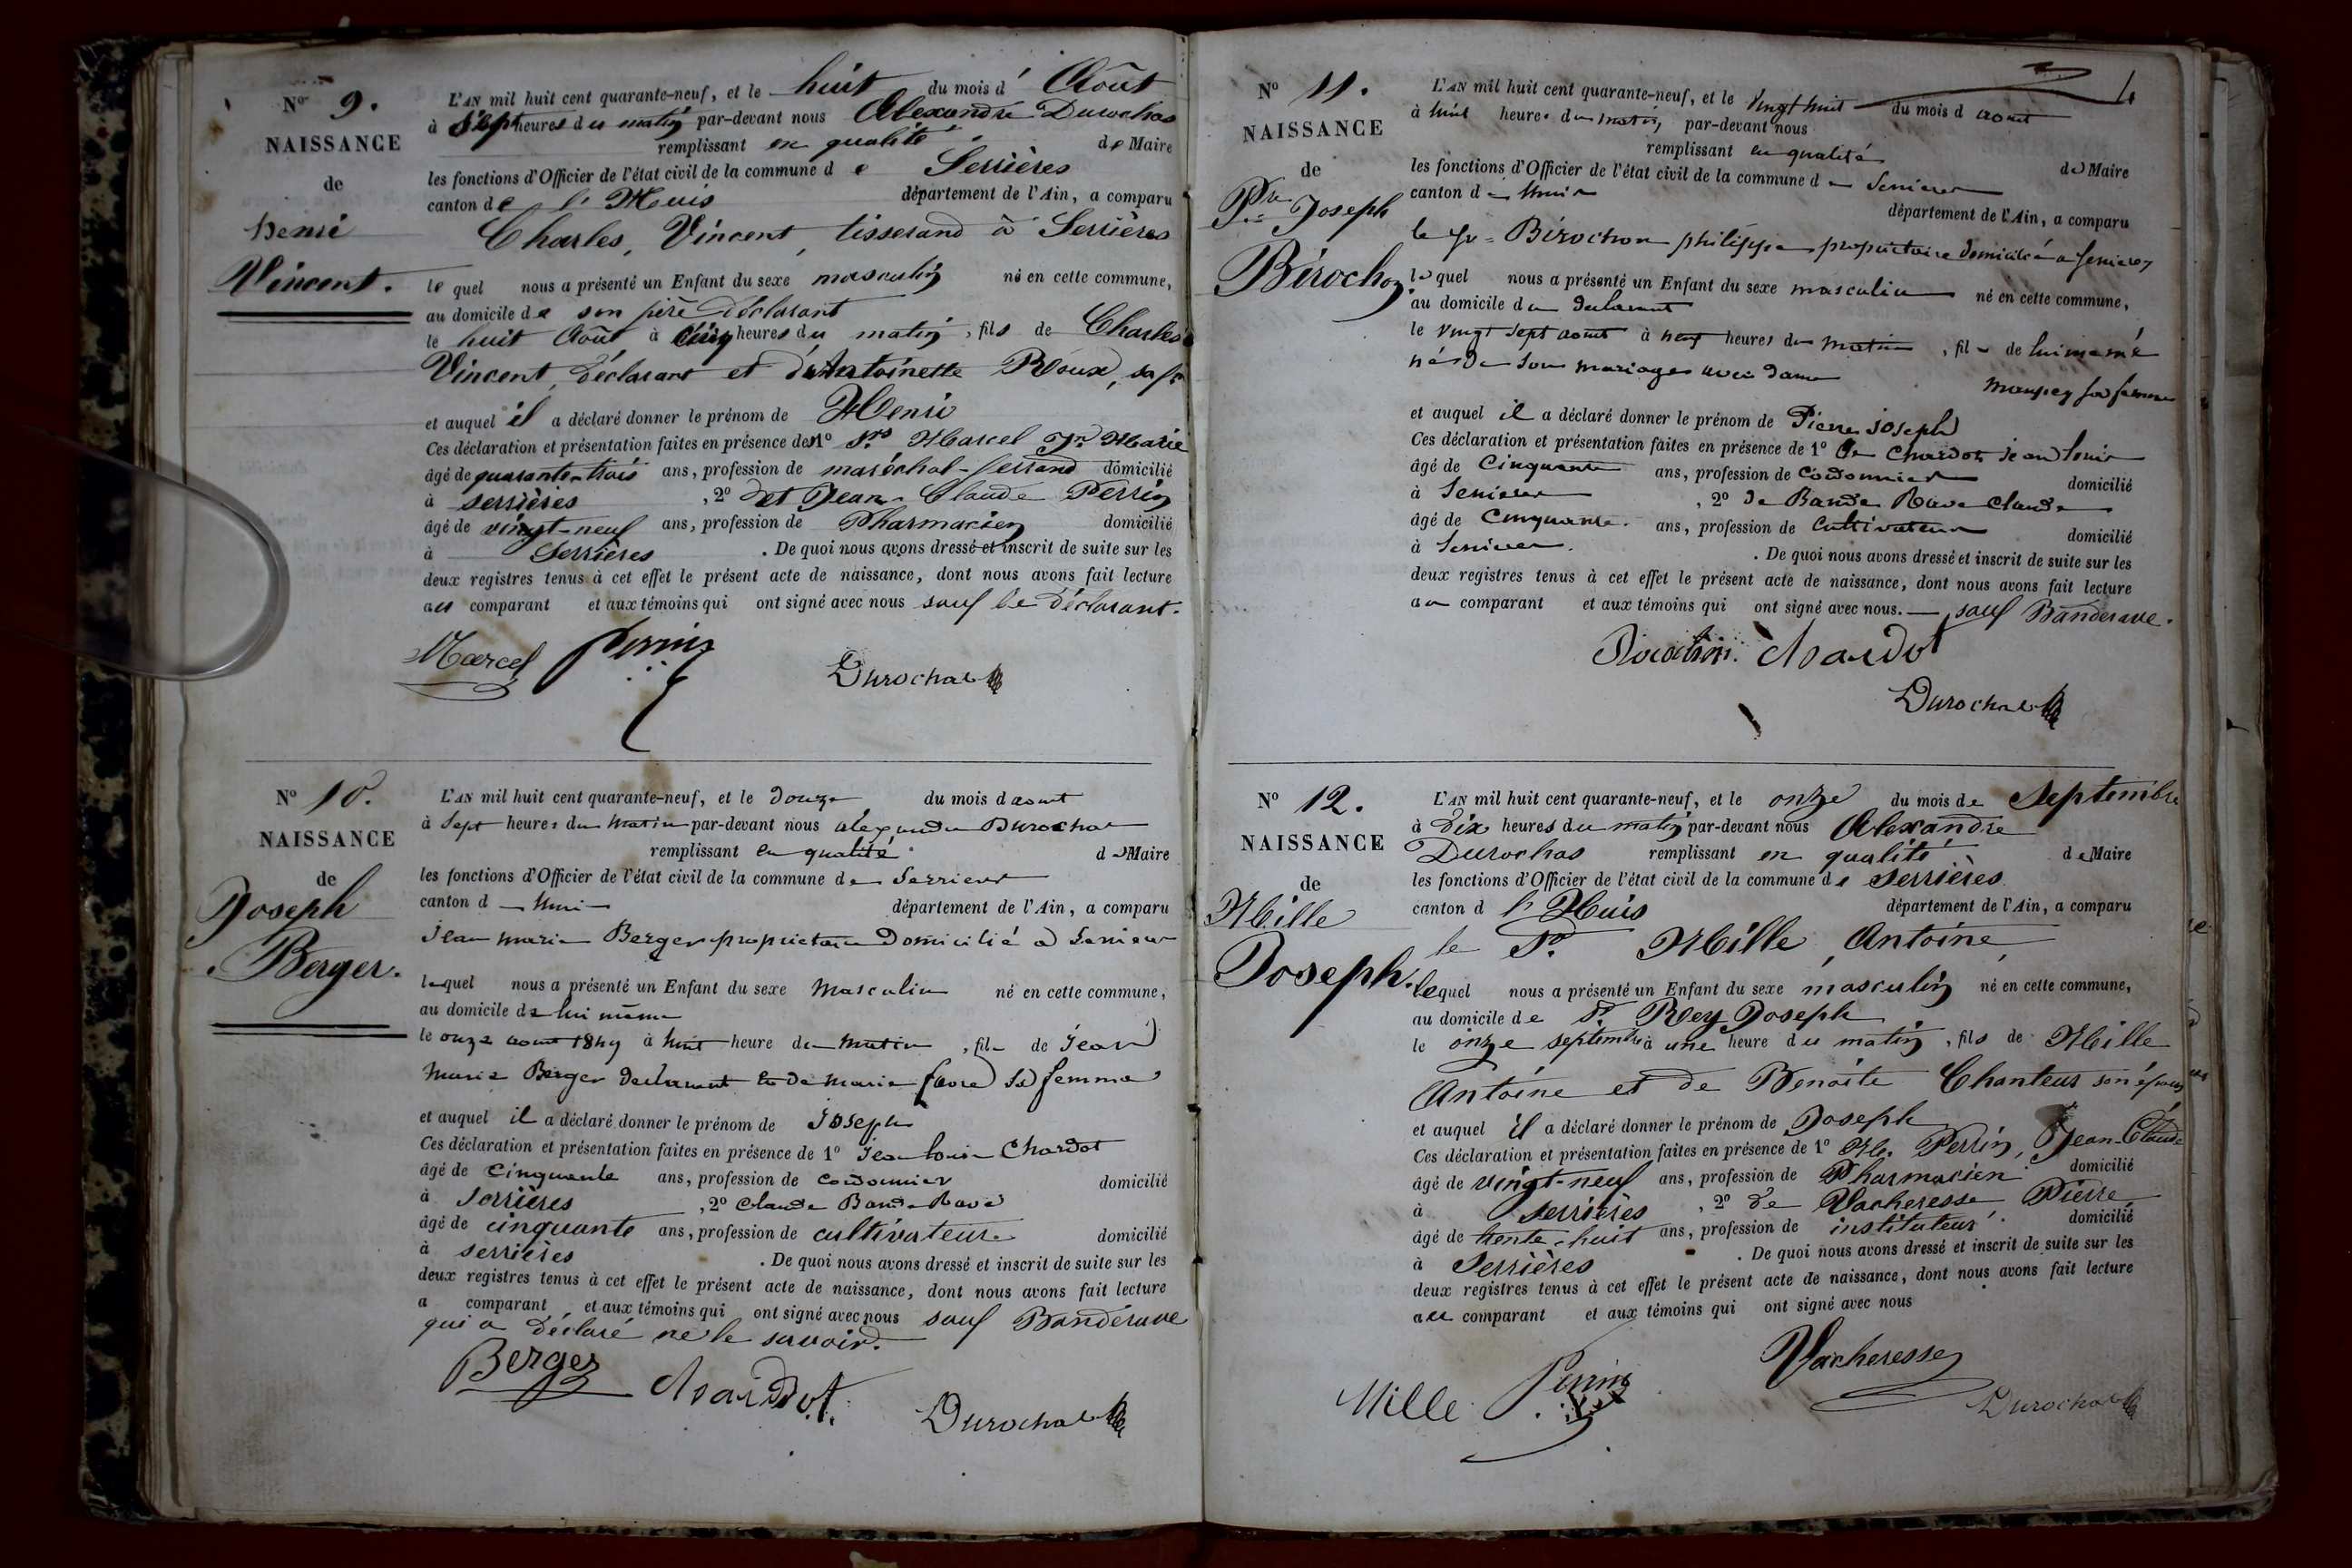 N° 9.
NAISSANCE
de
henri
Vincent.
L'AN mil huit cent quarante-neuf, et le huit du mois d' Août
à Sept heures du matin par-devant nous Alexandre Durochas
remplissant en qualité de Maire
les fonctions d'Officier de l'état civil de la commune de Serrières
canton de l'Huis département de l'Ain, a comparu
Charles, Vincent, tisserand à Serrières
lequel nous a présenté un Enfant du sexe masculin né en cette commune,
au domicile de son père déclarant
le huit Août à cinq heures du matin, fils de Charles
Vincent, déclarant et d'Antoinette Roux, sa fe
et auquel il a déclaré donner le prénom de Henri
Ces déclaration et présentation faites en présence de 1° Srs Marcel Jn Marie
âgé de quarante-trois ans, profession de maréchal-ferrand domicilié
à serrières, 2° et Jean-Claude Perrin
âgé de vingt-neuf ans, profession de Pharmacien domicilié
à Serrières. De quoi nous avons dressé et inscrit de suite sur les
deux registres tenus à cet effet le présent acte de naissance, dont nous avons fait lecture
au comparant et aux témoins qui ont signé avec nous sauf le déclarant.
Marcel Perrin
Durochat
N° 10.
NAISSANCE
de
Joseph
Berger.
L'AN mil huit cent quarante-neuf, et le douze du mois d aout
à Sept heures du matin par-devant nous alexandre Durochat
remplissant en qualité de Maire
les fonctions d'Officier de l'état civil de la commune de Serrieres
canton d département de l'Ain, a comparu
Jean marie Berger proprietaire Domicilié a Serrieres
lequel nous a présenté un Enfant du sexe Masculin né en cette commune,
au domicile de lui même
le onze aout 1849 à huit heure du matin, fils de Jean
Marie Berger declarant et de marie favre sa femme
et auquel il a déclaré donner le prénom de Joseph
Ces déclaration et présentation faites en présence de 1° Jean louis Chardot
âgé de Cinquante ans, profession de Cordonnier domicilié
à serrières, 2° Claude Bande Rave
âgé de cinquante ans, profession de cultivateur domicilié
à serrières. De quoi nous avons dressé et inscrit de suite sur les
deux registres tenus à cet effet le présent acte de naissance, dont nous avons fait lecture
a comparant, et aux témoins qui ont signé avec nous sauf Banderave
qui a déclaré ne le savoir.
Berger Chardot
Durochat
N° 11.
NAISSANCE
de
Pre Joseph
Bérochon
L'AN mil huit cent quarante-neuf, et le vingt huit du mois d aout
à huit heures du matin, par-devant nous
remplissant en qualité de Maire
les fonctions d'Officier de l'état civil de la commune de Serrieres
canton d département de l'Ain, a comparu
le Sr Bérochon philippe proprietaire domicilié a Serrieres
lequel nous a présenté un Enfant du sexe masculin né en cette commune,
au domicile du declarant
le vingt sept aout à neuf heures du matin, fils de lui meme
né de son mariage avec dame Maupey sa femme
et auquel il a déclaré donner le prénom de Pierre joseph
Ces déclaration et présentation faites en présence de 1° Chardot jean louis
âgé de Cinquante ans, profession de Cordonnier domicilié
à Serrieres, 2° de Bande Rave Claude
âgé de Cinquante. ans, profession de Cultivateur domicilié
à Serrieres. De quoi nous avons dressé et inscrit de suite sur les
deux registres tenus à cet effet le présent acte de naissance, dont nous avons fait lecture
au comparant et aux témoins qui ont signé avec nous. sauf Banderave.
Chardot
Durochat
N° 12.
NAISSANCE
de
Mille
Joseph.
L'AN mil huit cent quarante-neuf, et le onze du mois de Septembre
à Dix heures du matin par-devant nous Alexandre
Durochas remplissant en qualité de Maire
les fonctions d'Officier de l'état civil de la commune de Serrières
canton d l'Huis département de l'Ain, a comparu
le Sr. Mille, Antoine
lequel nous a présenté un Enfant du sexe masculin né en cette commune,
au domicile de Sr. Rey Joseph
le onze septembre à une heure du matin, fils de Mille
Antoine et de Benoite Chanteur son épouse
et auquel il a déclaré donner le prénom de Joseph
Ces déclaration et présentation faites en présence de 1° Mr. Perrin, Jean-Claude
âgé de vingt-neuf ans, profession de Pharmacien domicilié
à serrières, 2° de Vacheresse Pierre
âgé de trente-huit ans, profession de instituteur. domicilié
à Serrières. De quoi nous avons dressé et inscrit de suite sur les
deux registres tenus à cet effet le présent acte de naissance, dont nous avons fait lecture
au comparant et aux témoins qui ont signé avec nous
Vacheresse
Mille Perrin
Durochat